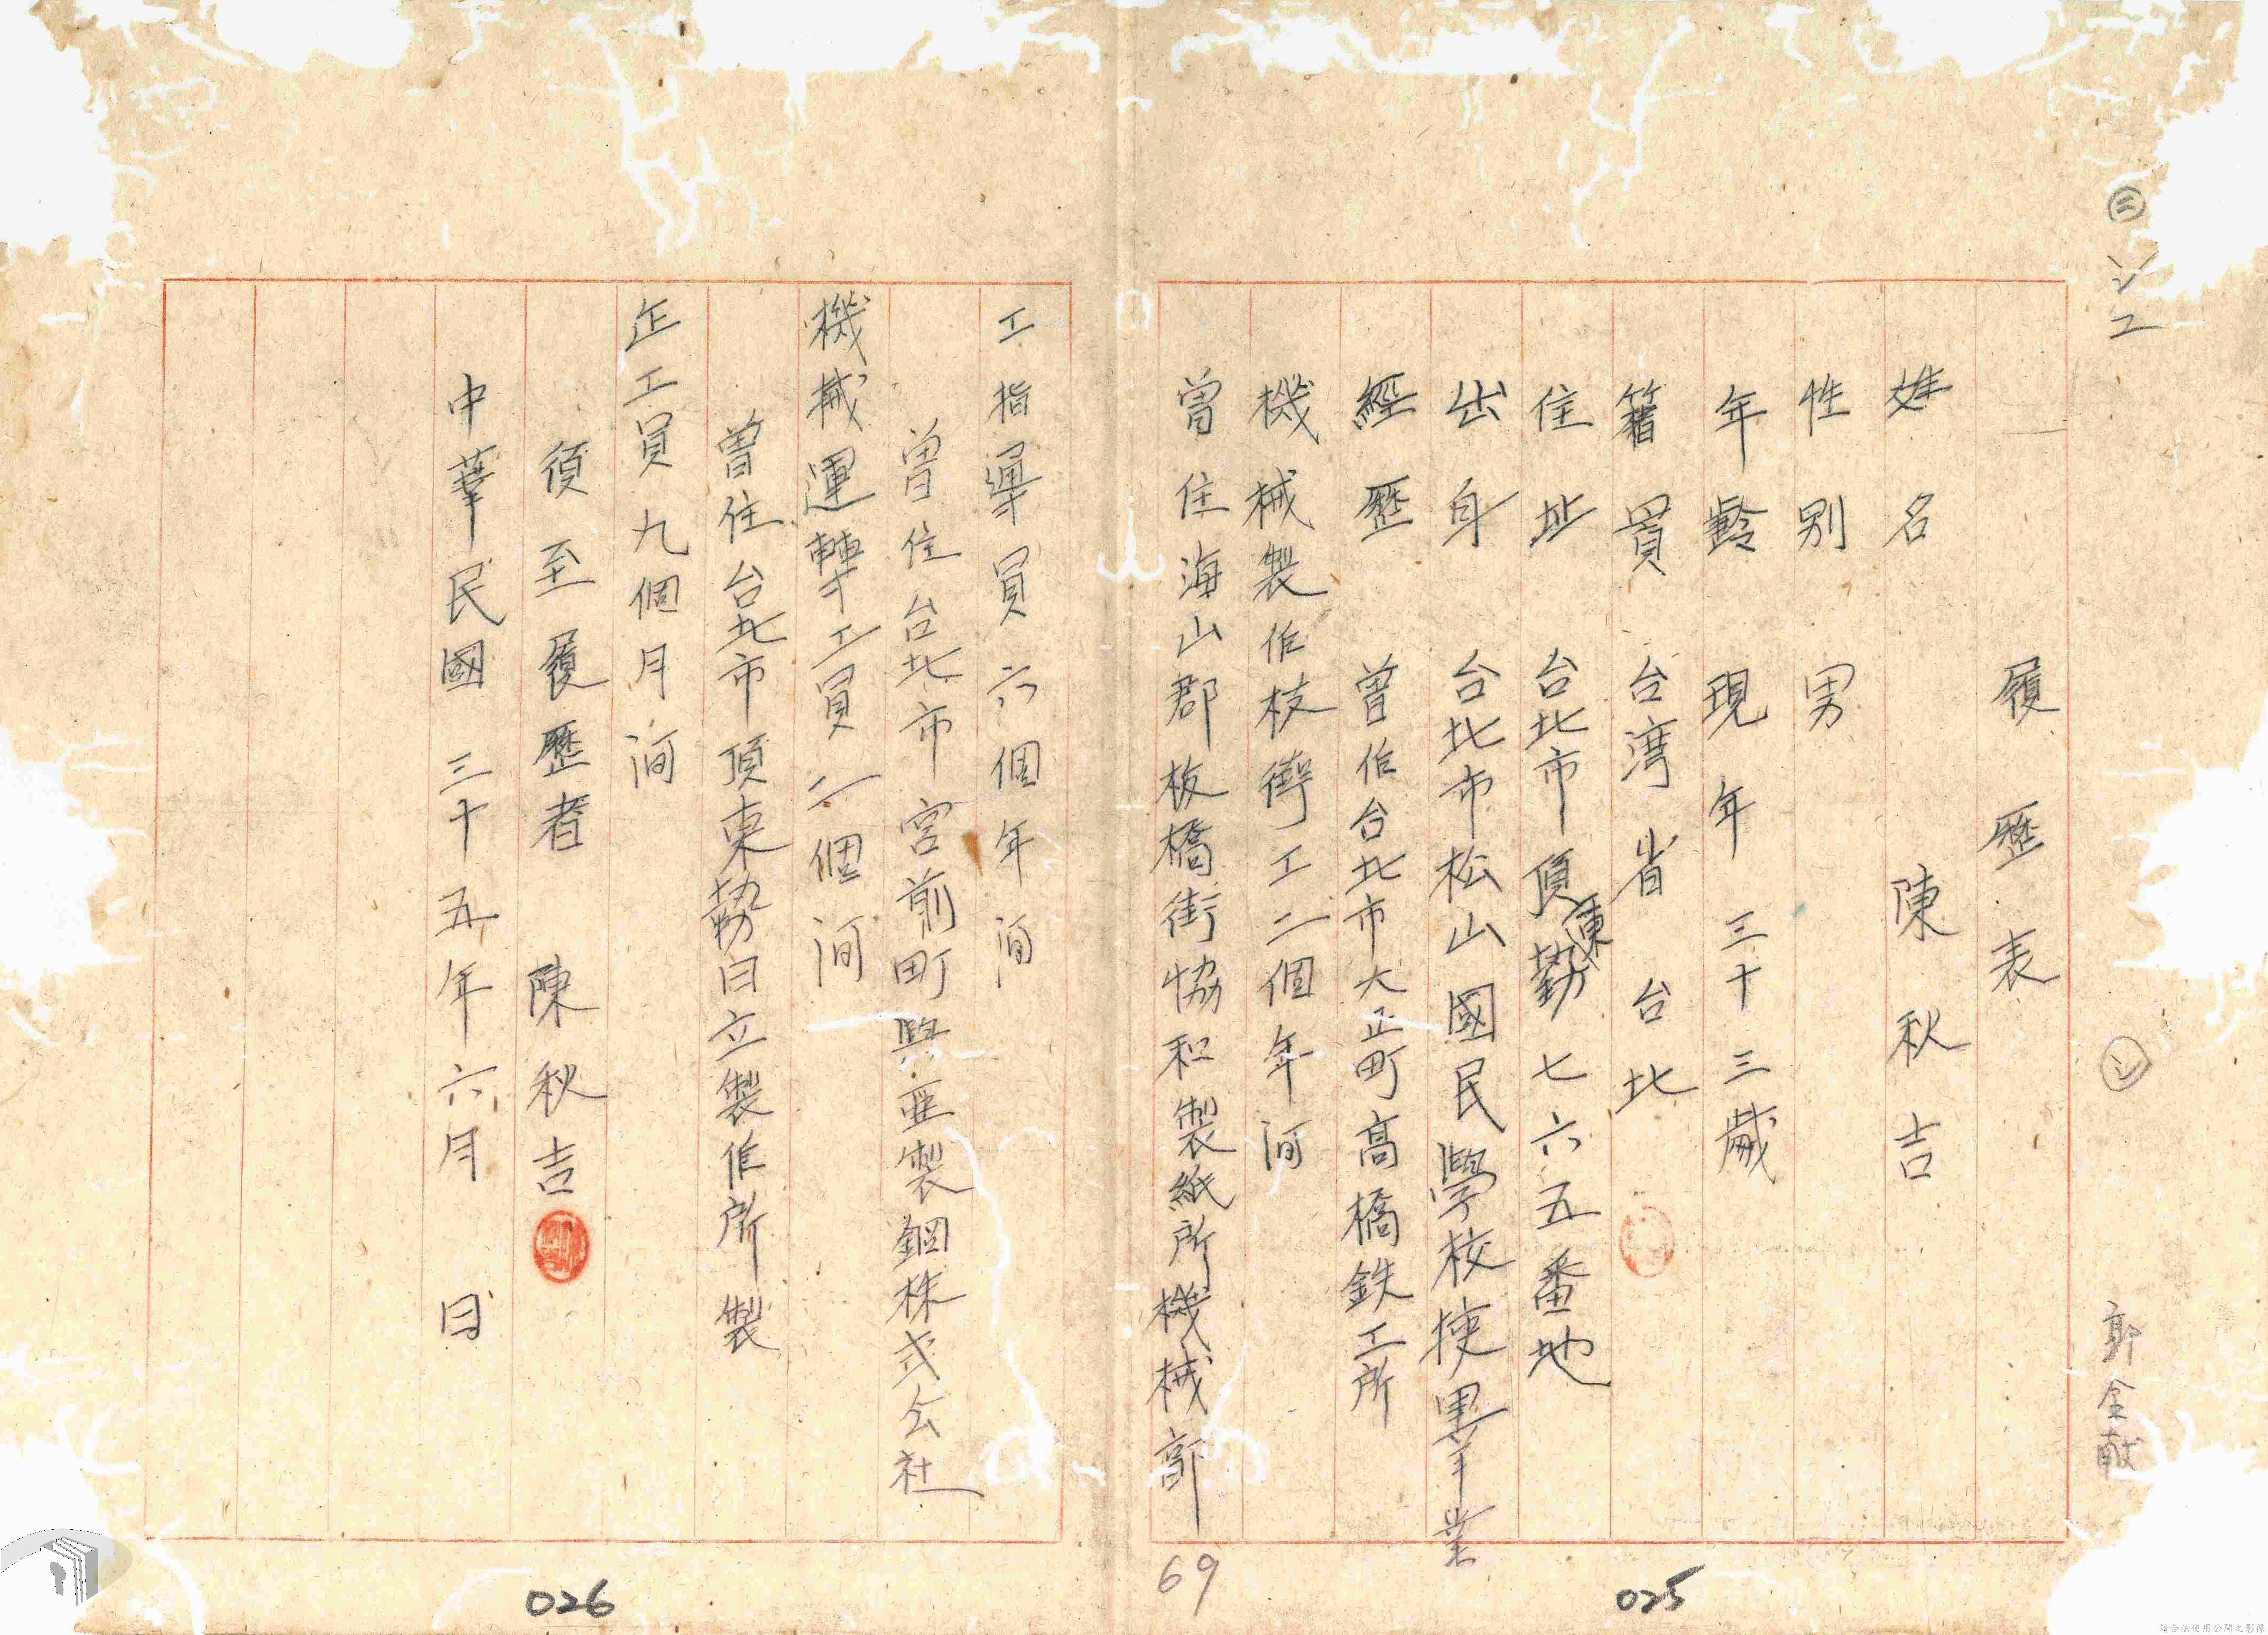 ㊂
履歷表
姓名 陳秋吉
性別 男
年齡 現年三十三歲
籍貫 台湾省台北
住址 台北市頂東勢七六五番地
出身 台北市松山國民學校畢業
經歷 曾作台北市大正町高橋鉄工所
機械製作枝術工二個年间
曾住海山郡板橋街協和製紙所機械部
工指導員六個年间
曾住台北市宮前町興亜製鋼株式会社
機械運轉工員二個间
曾住台北市頂東勢日立製作所製
正工員九個月间
須至履歷者 陳秋吉
中華民國三十五年六月 日
郭金献
69
025
026
請合法使用公開之影像